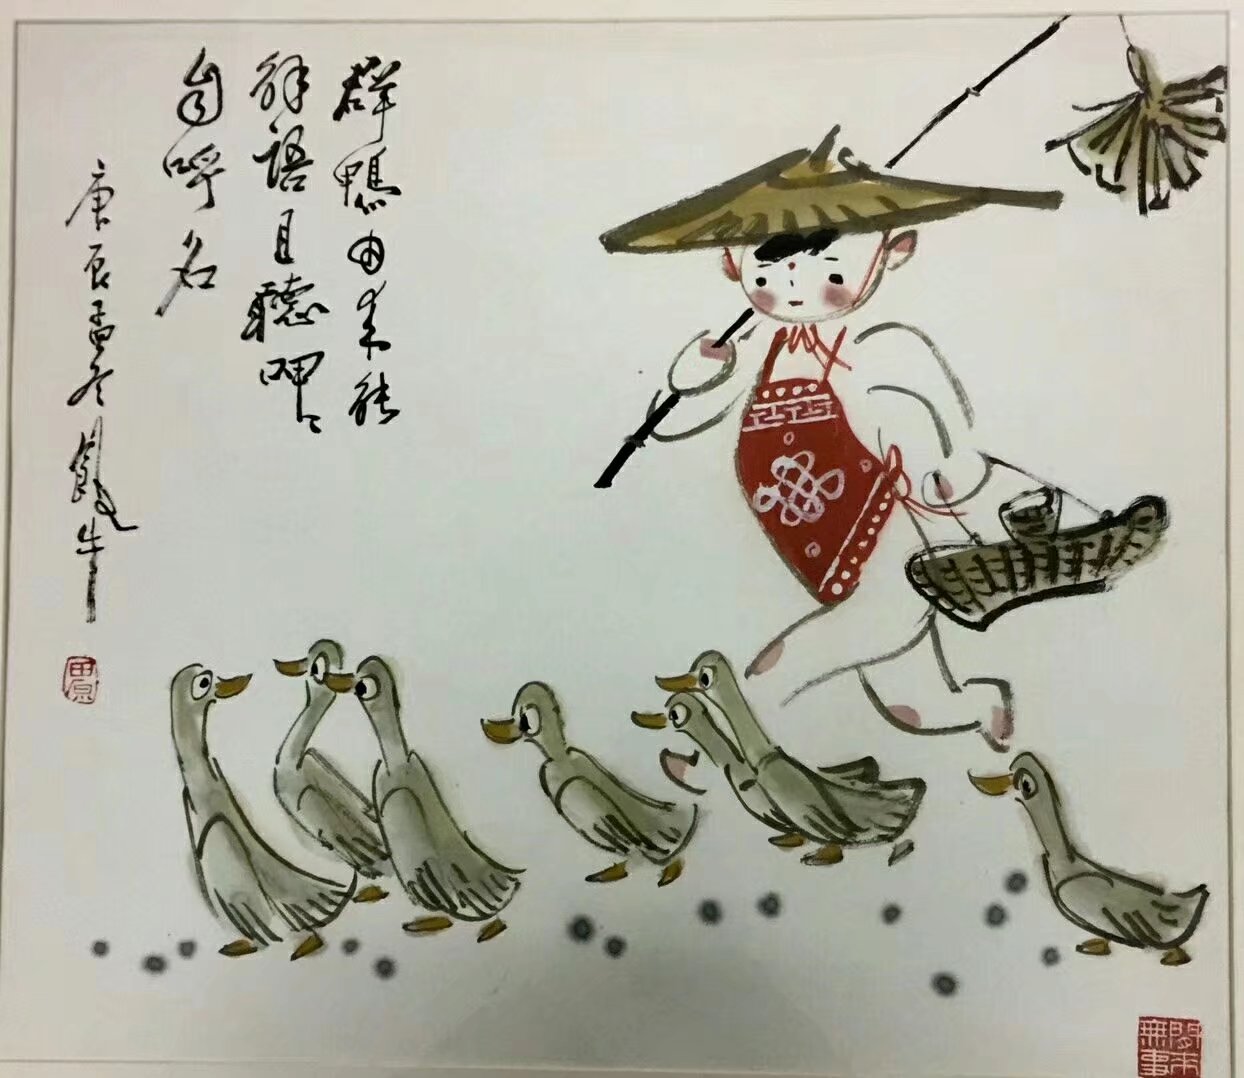 群鴨由来能
解語且聽呷々
自呼名
庚辰孟冬飯牛
閑來無事